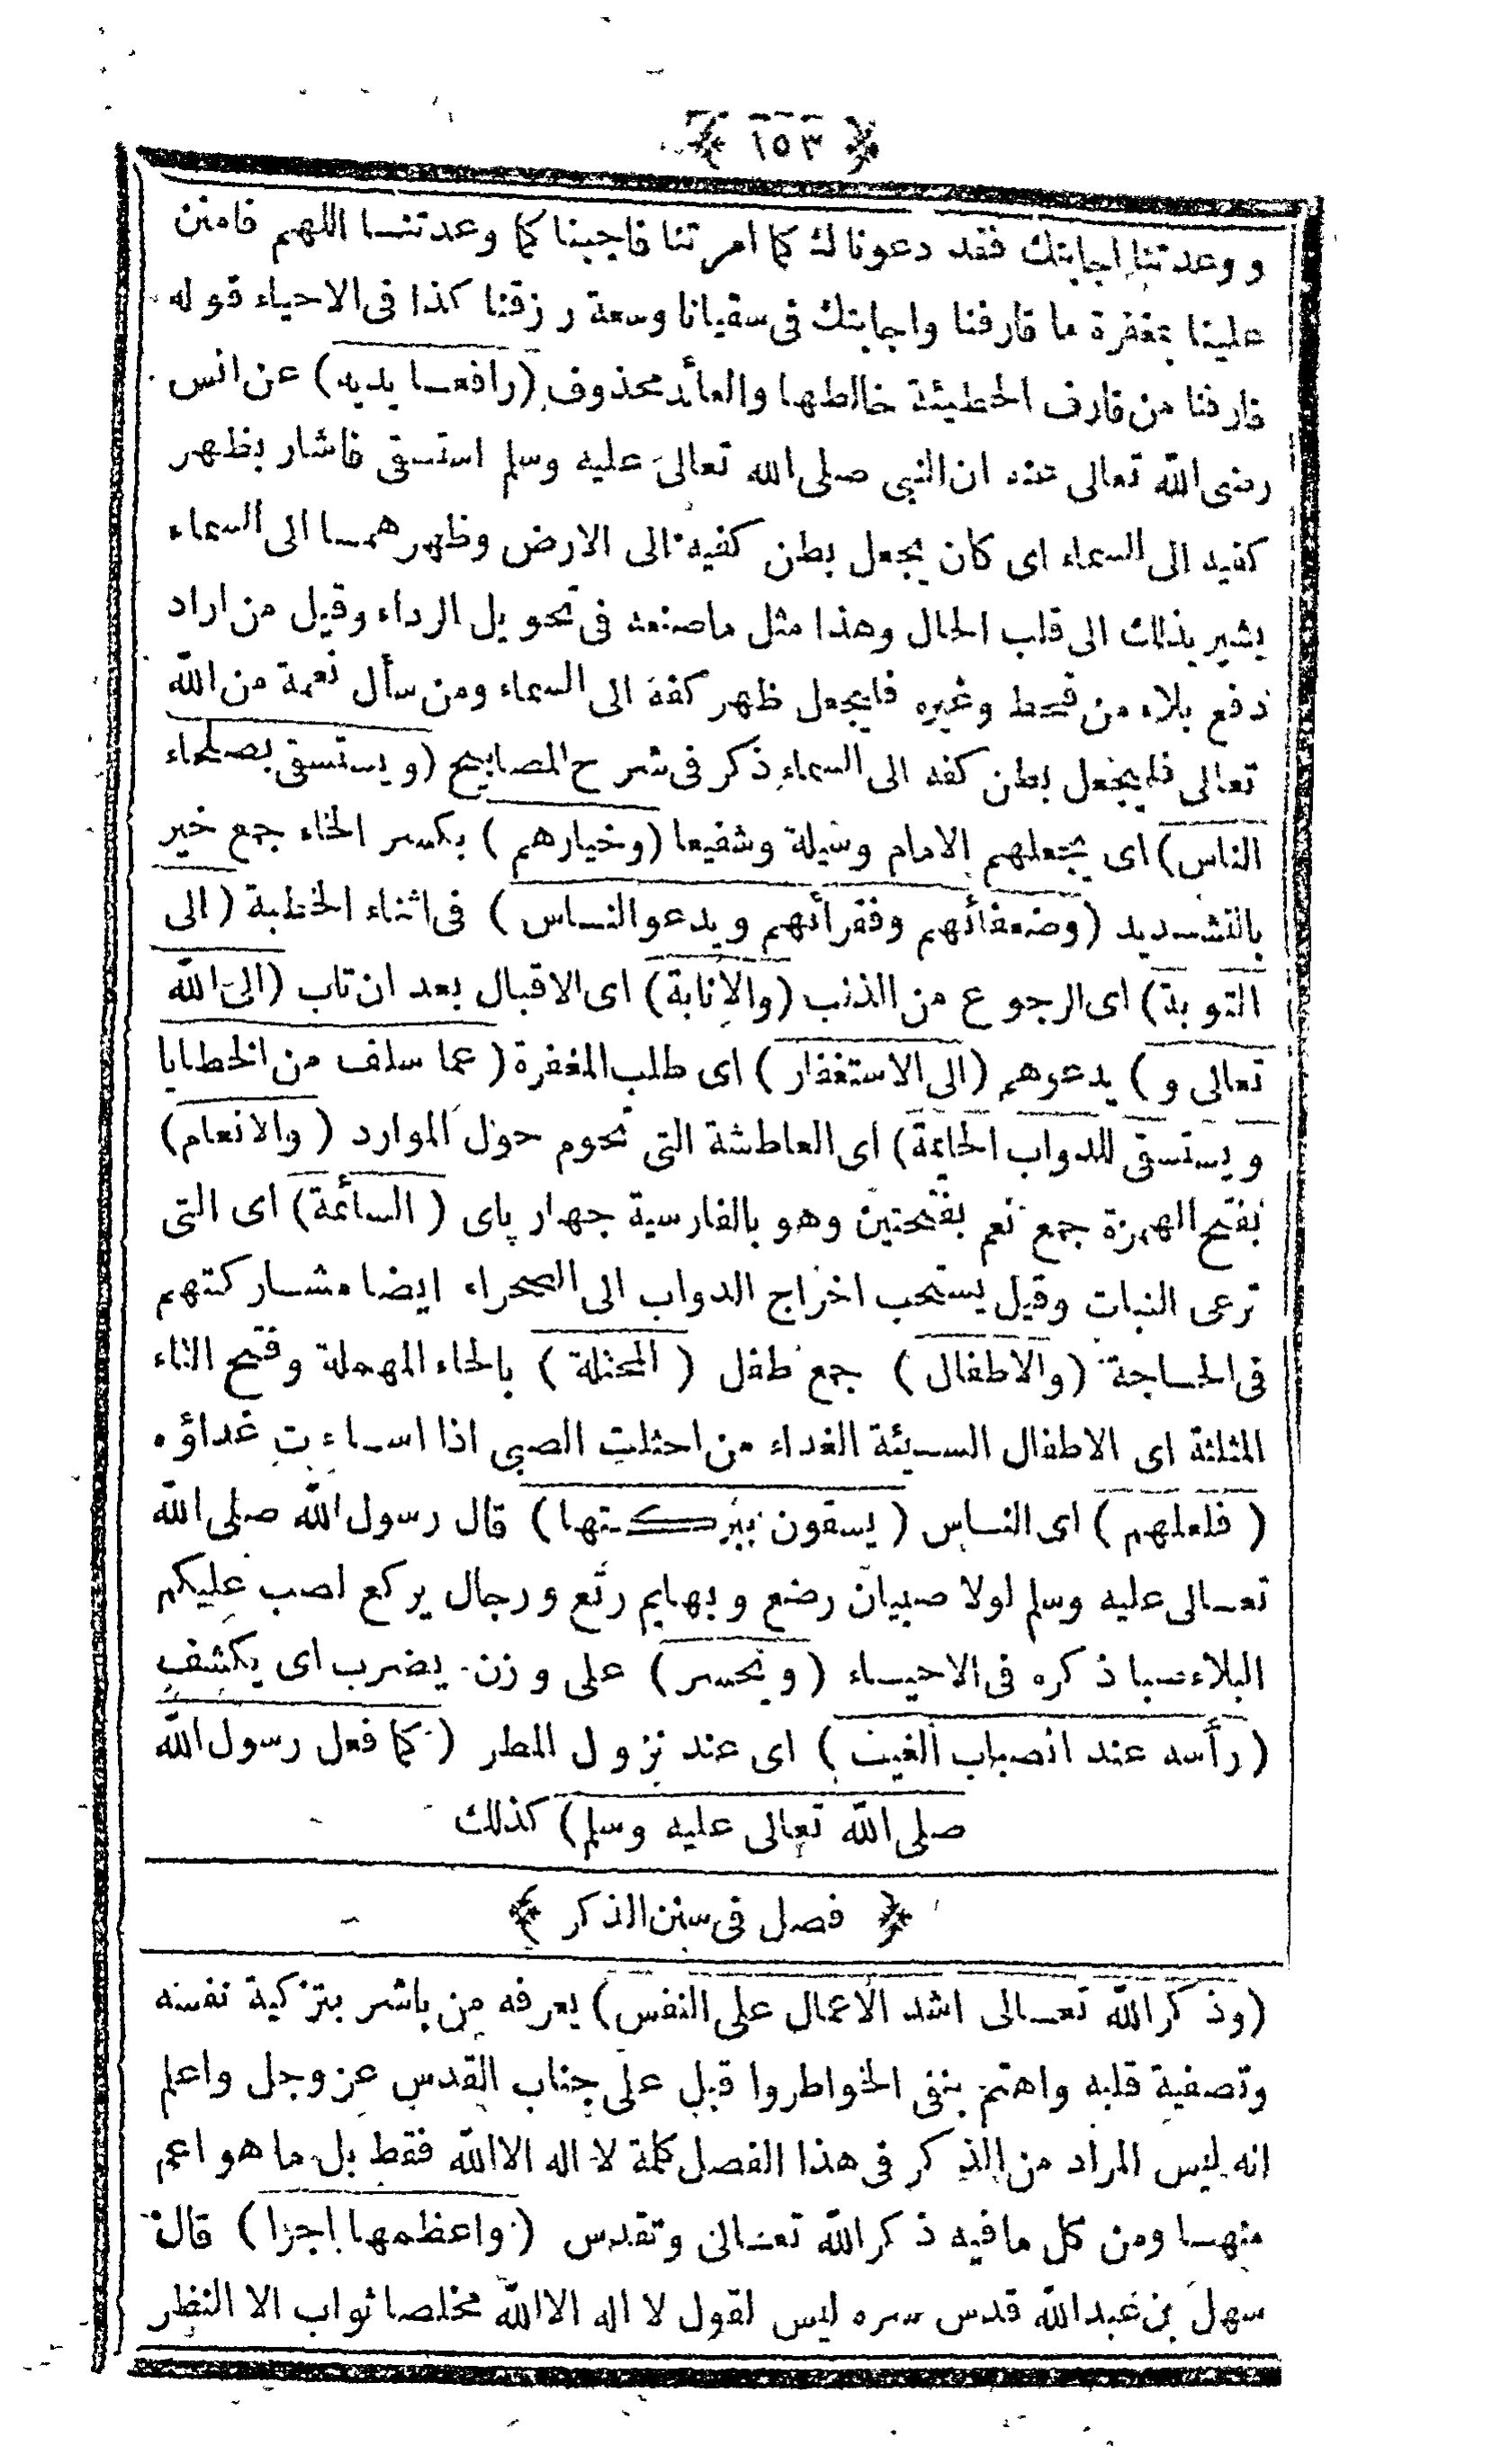 ﴿ ١٥٣ ﴾
و وعدتنا اجابتك فقد دعوناك كما امرتنا فاجبنا كما وعدتنا اللهم فامنن
علينا بمغفرة ما قارفنا واجابتك فى سقيانا وسعة رزقنا كذا فى الاحياء قوله
قارفنا من قارف الخطيئة خالطها والعائد محذوف (رافعا يديه) عن انس
رضى الله تعالى عنه ان النبى صلى الله تعالى عليه وسلم استسقى فاشار بظهر
كفيه الى السماء اى كان يجعل بطن كفيه الى الارض وظهرهما الى السماء
يشير بذلك الى قلب الحال وهذا مثل ما صنعه فى تحويل الرداء وقيل من اراد
دفع بلاء من قحط وغيره فليجعل ظهر كفه الى السماء ومن سأل نعمة من الله
تعالى فليجعل بطن كفه الى السماء ذكر فى شرح المصابيح (ويستسقى بصلحاء
الناس) اى يجعلهم الامام وسيلة وشفيعا (وخيارهم) بكسر الخاء جمع خير
بالتشديد (وضعفائهم وفقرائهم ويدعو الناس) فى اثناء الخطبة (الى
التوبة) اى الرجوع من الذنب (والانابة) اى الاقبال بعد ان تاب (الى الله
تعالى و) يدعوهم (الى الاستغفار) اى طلب المغفرة (عما سلف من الخطايا
ويستسقى للدواب الحائمة) اى العاطشة التى تحوم حول الموارد (والانعام)
بفتح الهمزة جمع نعم بفتحتين وهو بالفارسية جهار پاى (السائمة) اى التى
ترعى النبات وقيل يستحب اخراج الدواب الى الصحراء ايضا مشاركتهم
فى الحاجة (والاطفال) جمع طفل (المحثلة) بالحاء المهملة وفتح الثاء
المثلثة اى الاطفال السيئة الغداء من احثلت الصبى اذا اساءت غداؤه
(فلعلهم) اى الناس (يسقون ببركتها) قال رسول الله صلى الله
تعالى عليه وسلم لولا صبيان رضع وبهايم رتع ورجال يركع لصب عليكم
البلاء صبا ذكره فى الاحياء (ويحسر) على وزن يضرب اى يكشف
(رأسه عند انصباب الغيث) اى عند نزول المطر (كما فعل رسول الله
صلى الله تعالى عليه وسلم) كذلك
﴿ فصل فى سنن الذكر ﴾
(وذكر الله تعالى اشد الاعمال على النفس) يعرفه من باشر بتزكية نفسه
وتصفية قلبه واهتم بنفى الخواطر واقبل على جناب القدس عز وجل واعلم
انه ليس المراد من الذكر فى هذا الفصل كلمة لا اله الا الله فقط بل ما هو اعم
منها ومن كل ما فيه ذكر الله تعالى وتقدس (واعظمها اجرا) قال
سهل بن عبد الله قدس سره ليس لقول لا اله الا الله مخلصا ثواب الا النظر